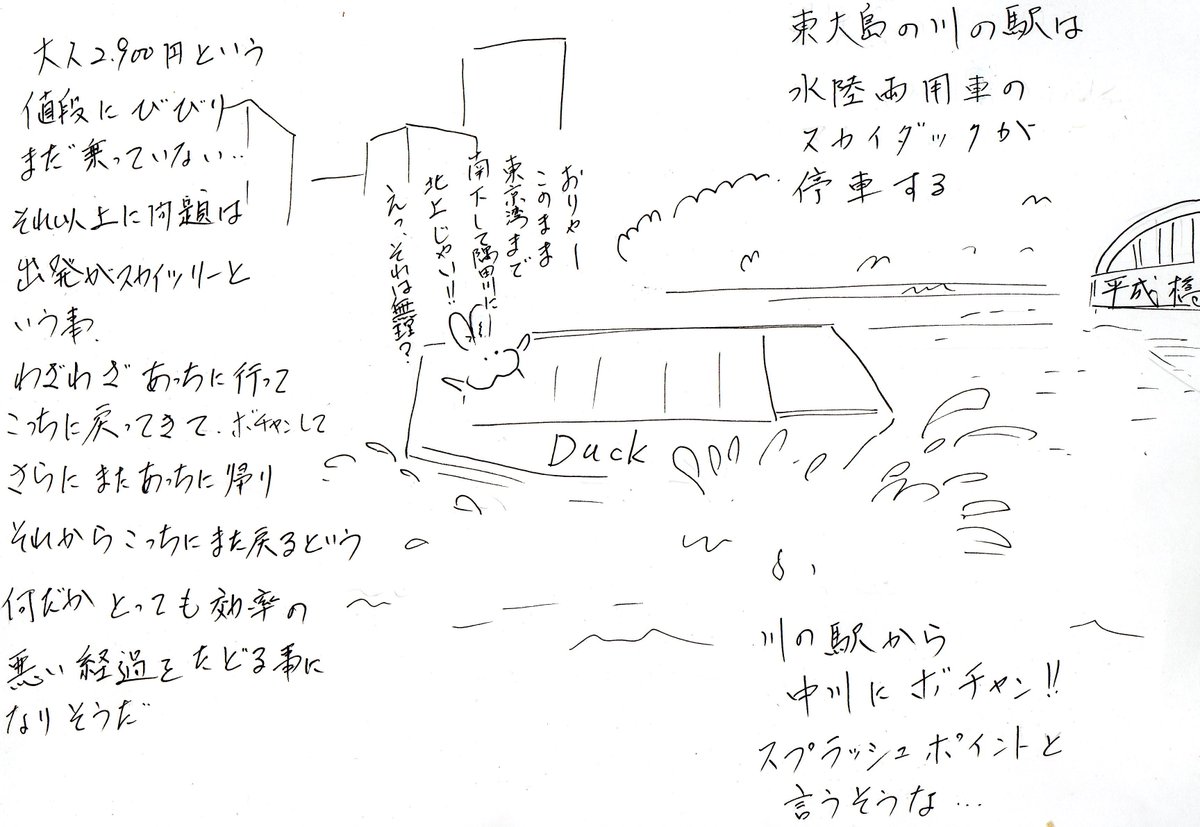 東大島の川の駅は
水陸両用車の
スカイダックが
停車する
大人2.900円という
値段にびびり
まだ乗っていない..
それ以上に問題は
出発がスカイツリーと
いう事.
わざわざあっちに行って
こっちに戻ってきて.ボチャンして
さらにまたあっちに帰り
それからこっちにまた戻るという
何だかとっても効率の
悪い経過をたどる事に
なりそうだ
おりゃー
このまま
東京湾まで
南下して隅田川に
北上じゃい!!
えっ、それは無理?
平成橋
Duck
川の駅から
中川にボチャン!!
スプラッシュポイントと
言うそうな…